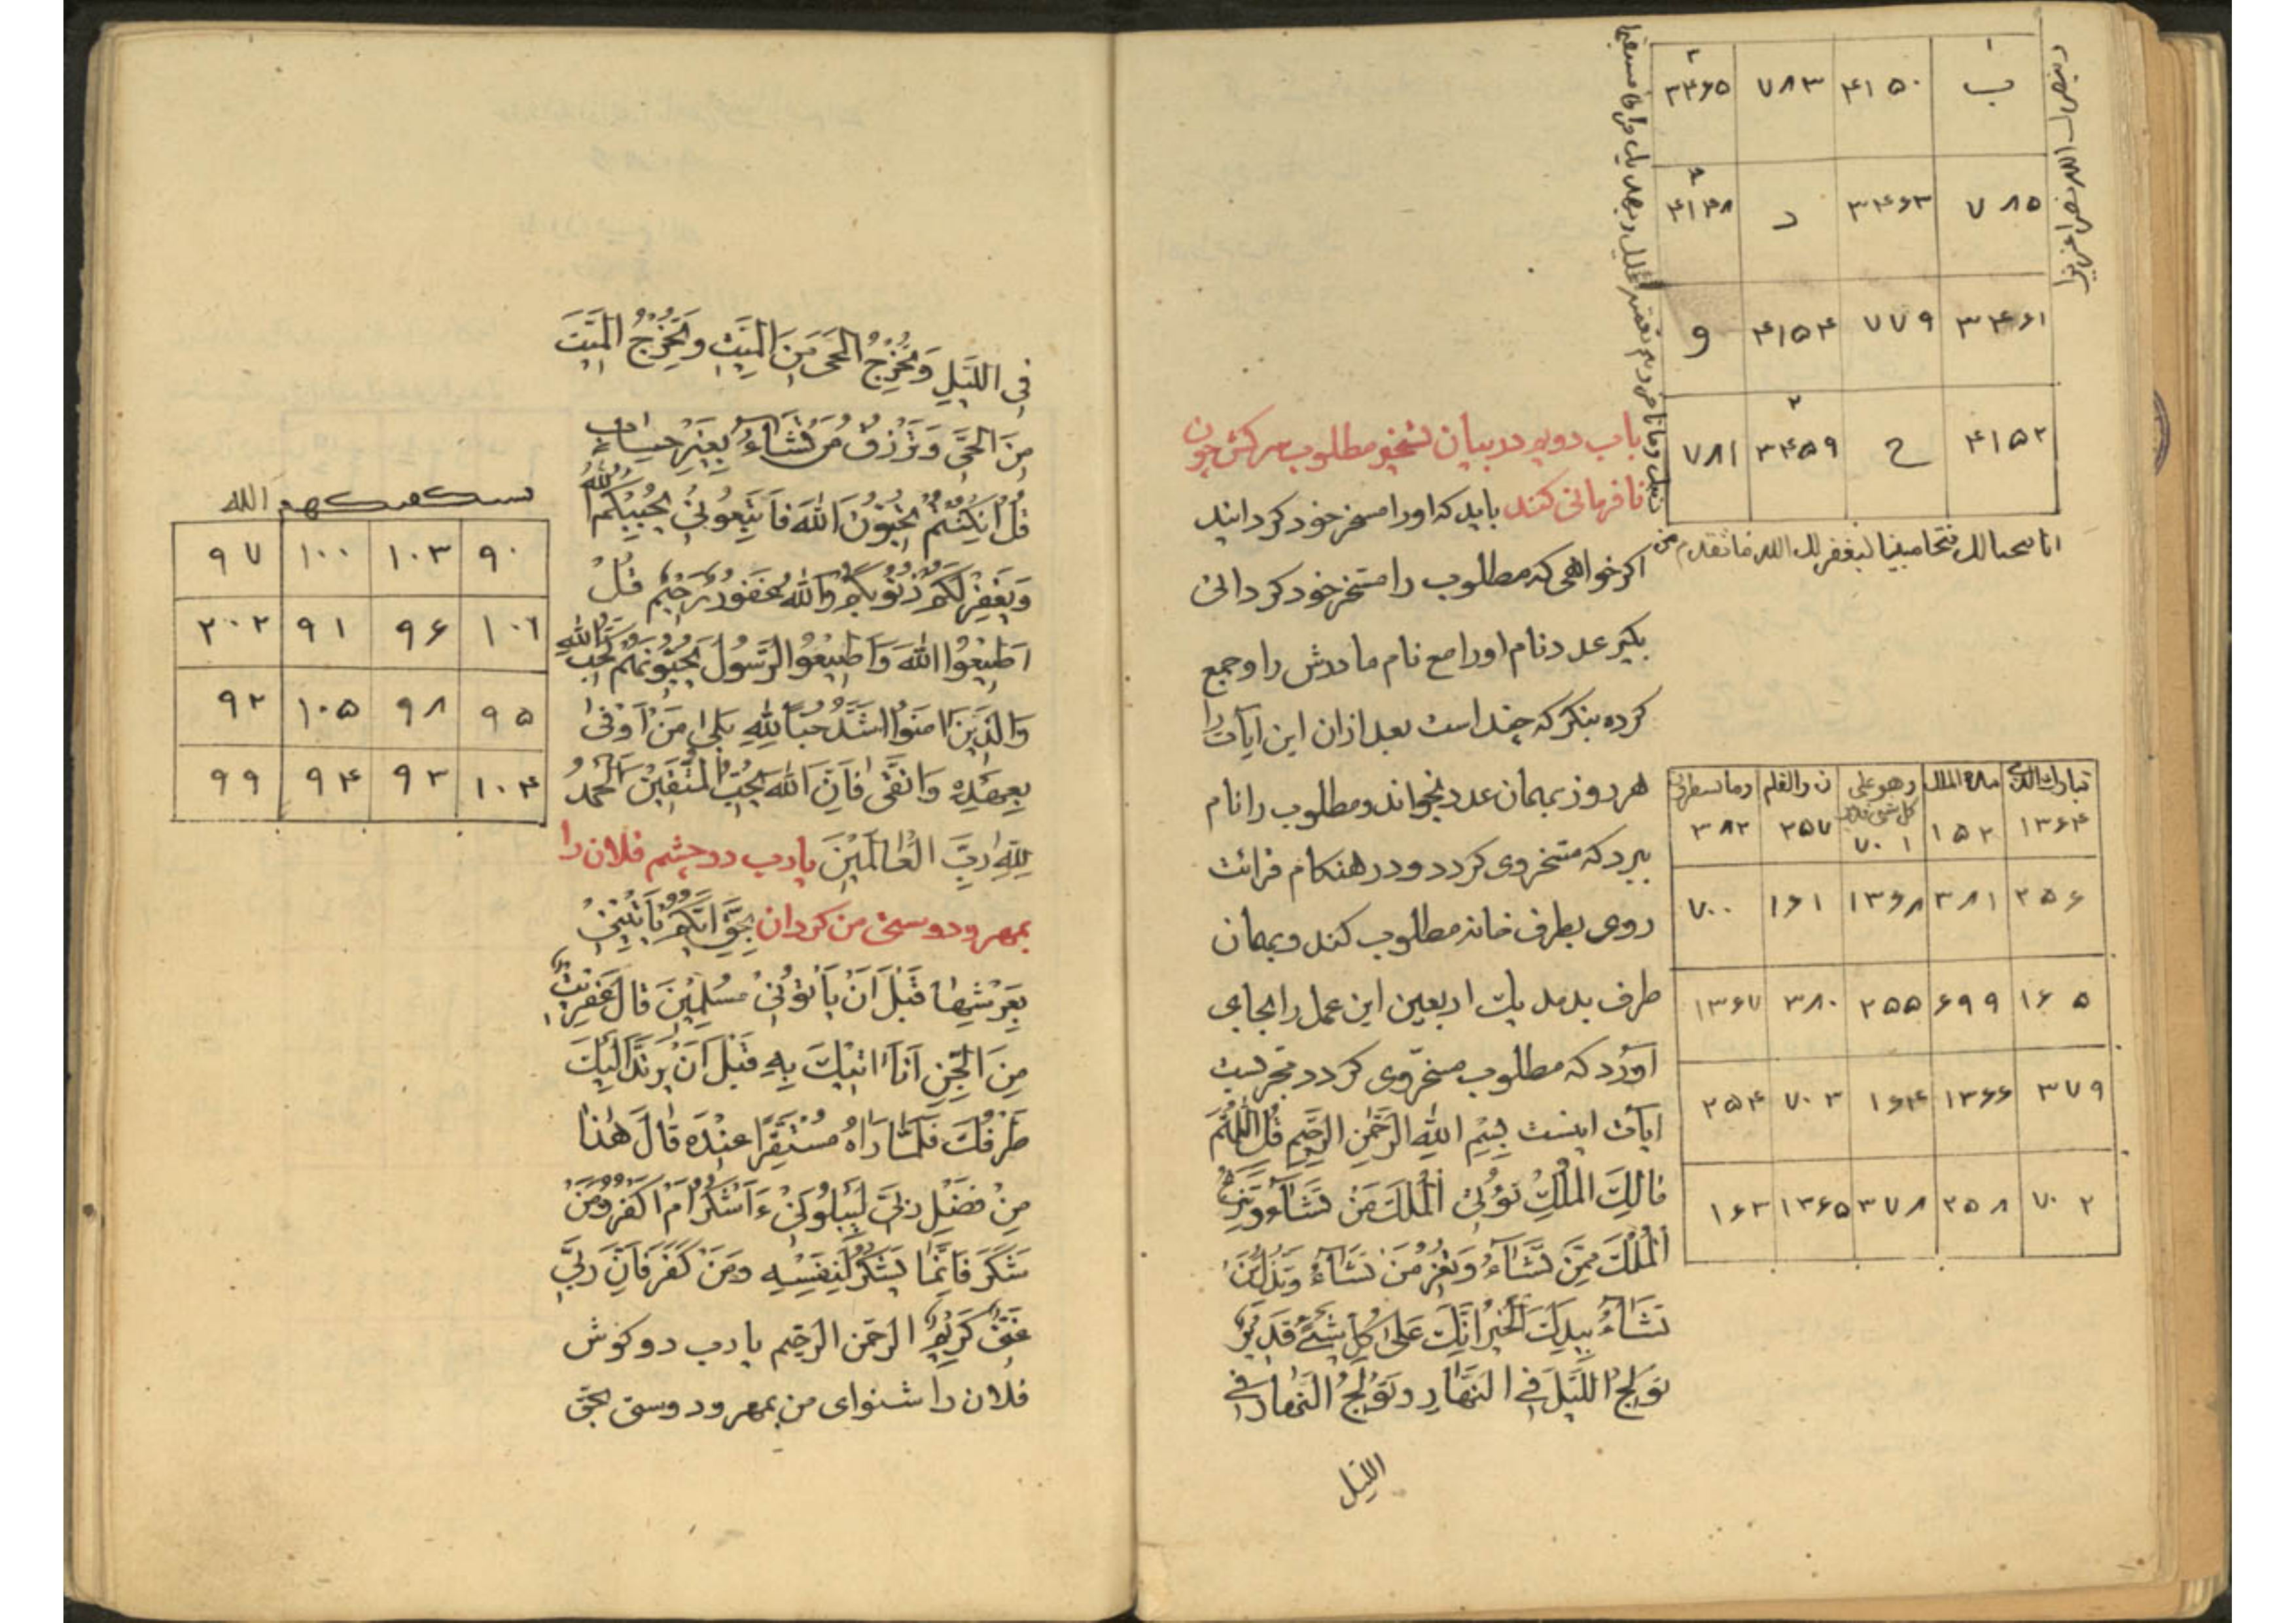 ۲ ۱
ب ۴۱۵۰ ۷۸۳ ۳۴۶۵
۷۸۵ ۳۴۶۳ د ۴۱۴۸
۳۴۶۱ ۷۷۹ ۴۱۵۴ و
۴۱۵۲ ح ۳۴۵۹ ۷۸۱
انا فتحنا لك فتحا مبينا ليغفر لك الله ما تقدم من
باب دویم در بیان تسخیر مطلوب سرکش چون
نافرمانی کند باید که اورا مسخر خود کرداند
اکر خواهی که مطلوب را مسخر خود کردانی
بکیر عدد نام اورا مع نام مادرش را و جمع
کرده بنکر که چند است بعد ازان این ایات را
هر دوز بهمان عدد بخواند و مطلوب را نام
ببرد که مسخر وی کردد و در هنکام قرائت
روی بطرف خانه مطلوب کند و بهمان
طرف بدمد یك اربعین این عمل را بجای
آورد که مطلوب مسخر وی کردد مجربست
ایات اینست بِسْمِ اللهِ الرَّحْمٰنِ الرَّحِیمِ قُلِ اللّٰهُمَّ
مَالِكَ الْمُلْكِ تُؤْتِی الْمُلْكَ مَنْ تَشَاءُ وَتَنْزِعُ
الْمُلْكَ مِمَّنْ تَشَاءُ وَتُعِزُّ مَنْ تَشَاءُ وَتُذِلُّ مَنْ
تَشَاءُ بِیَدِكَ الْخَیْرُ اِنَّكَ عَلٰی كُلِّ شَیْءٍ قَدِیرٌ
تُولِجُ اللَّیْلَ فِی النَّهَارِ وَتُولِجُ النَّهَارَ فِی
اللیل
تبارك الذی بیده الملك وهو علی كل شئ قدیر ن والقلم وما یسطرون
۱۳۶۴ ۱۵۲ ۷۰۱ ۲۵۷ ۳۸۲
۲۵۶ ۳۸۱ ۱۳۶۸ ۱۶۱ ۷۰۰
۱۶۵ ۶۹۹ ۲۵۵ ۳۸۰ ۱۳۶۷
۳۷۹ ۱۳۶۶ ۱۶۴ ۷۰۳ ۲۵۴
۷۰۲ ۲۵۸ ۳۷۸ ۱۳۶۵ ۱۶۳
فِی اللَّیْلِ وَتُخْرِجُ الْحَیَّ مِنَ الْمَیِّتِ وَتُخْرِجُ الْمَیِّتَ
مِنَ الْحَیِّ وَتَرْزُقُ مَنْ تَشَاءُ بِغَیْرِ حِسَابٍ
قُلْ اِنْ كُنْتُمْ تُحِبُّونَ اللهَ فَاتَّبِعُونِی یُحْبِبْكُمُ اللهُ
وَیَغْفِرْ لَكُمْ ذُنُوبَكُمْ وَاللهُ غَفُورٌ رَحِیمٌ قُلْ
اَطِیعُوا اللهَ وَاَطِیعُوا الرَّسُولَ یُحِبُّونَهُمْ كَحُبِّ اللهِ
وَالَّذِینَ اٰمَنُوا اَشَدُّ حُبًّا لِلّٰهِ بَلٰی مَنْ اَوْفٰی
بِعَهْدِهِ وَاتَّقٰی فَاِنَّ اللهَ یُحِبُّ الْمُتَّقِینَ اَلْحَمْدُ
لِلّٰهِ رَبِّ الْعَالَمِینَ یا رب دو چشم فلان را
بمهر و دوستی من کردان بِحَقِّ اَیُّكُمْ یَأْتِینِی
بِعَرْشِهَا قَبْلَ اَنْ یَأْتُونِی مُسْلِمِینَ قَالَ عِفْرِیتٌ
مِنَ الْجِنِّ اَنَا اٰتِیكَ بِهِ قَبْلَ اَنْ یَرْتَدَّ اِلَیْكَ
طَرْفُكَ فَلَمَّا رَاٰهُ مُسْتَقِرًّا عِنْدَهُ قَالَ هٰذَا
مِنْ فَضْلِ رَبِّی لِیَبْلُوَنِی ءَاَشْكُرُ اَمْ اَكْفُرُ وَمَنْ
شَكَرَ فَاِنَّمَا یَشْكُرُ لِنَفْسِهِ وَمَنْ كَفَرَ فَاِنَّ رَبِّی
غَنِیٌّ كَرِیمٌ الرحمن الرحیم یا رب دو کوش
فلان را شنوای من بمهر و دوستی بحق
الله
۹۰ ۱۰۳ ۱۰۰ ۹۷
۱۰۱ ۹۶ ۹۱ ۲۰۲
۹۵ ۹۸ ۱۰۵ ۹۲
۱۰۴ ۹۳ ۹۴ ۹۹